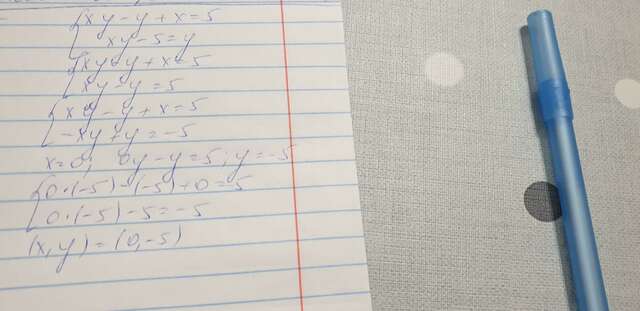 xy - y + x = 5
xy - 5 = y
xy - y + x = 5
xy - y = 5
xy - y + x = 5
-xy + y = -5
x = 0; 0y - y = 5; y = -5
0·(-5) - (-5) + 0 = 5
0·(-5) - 5 = -5
(x, y) = (0, -5)